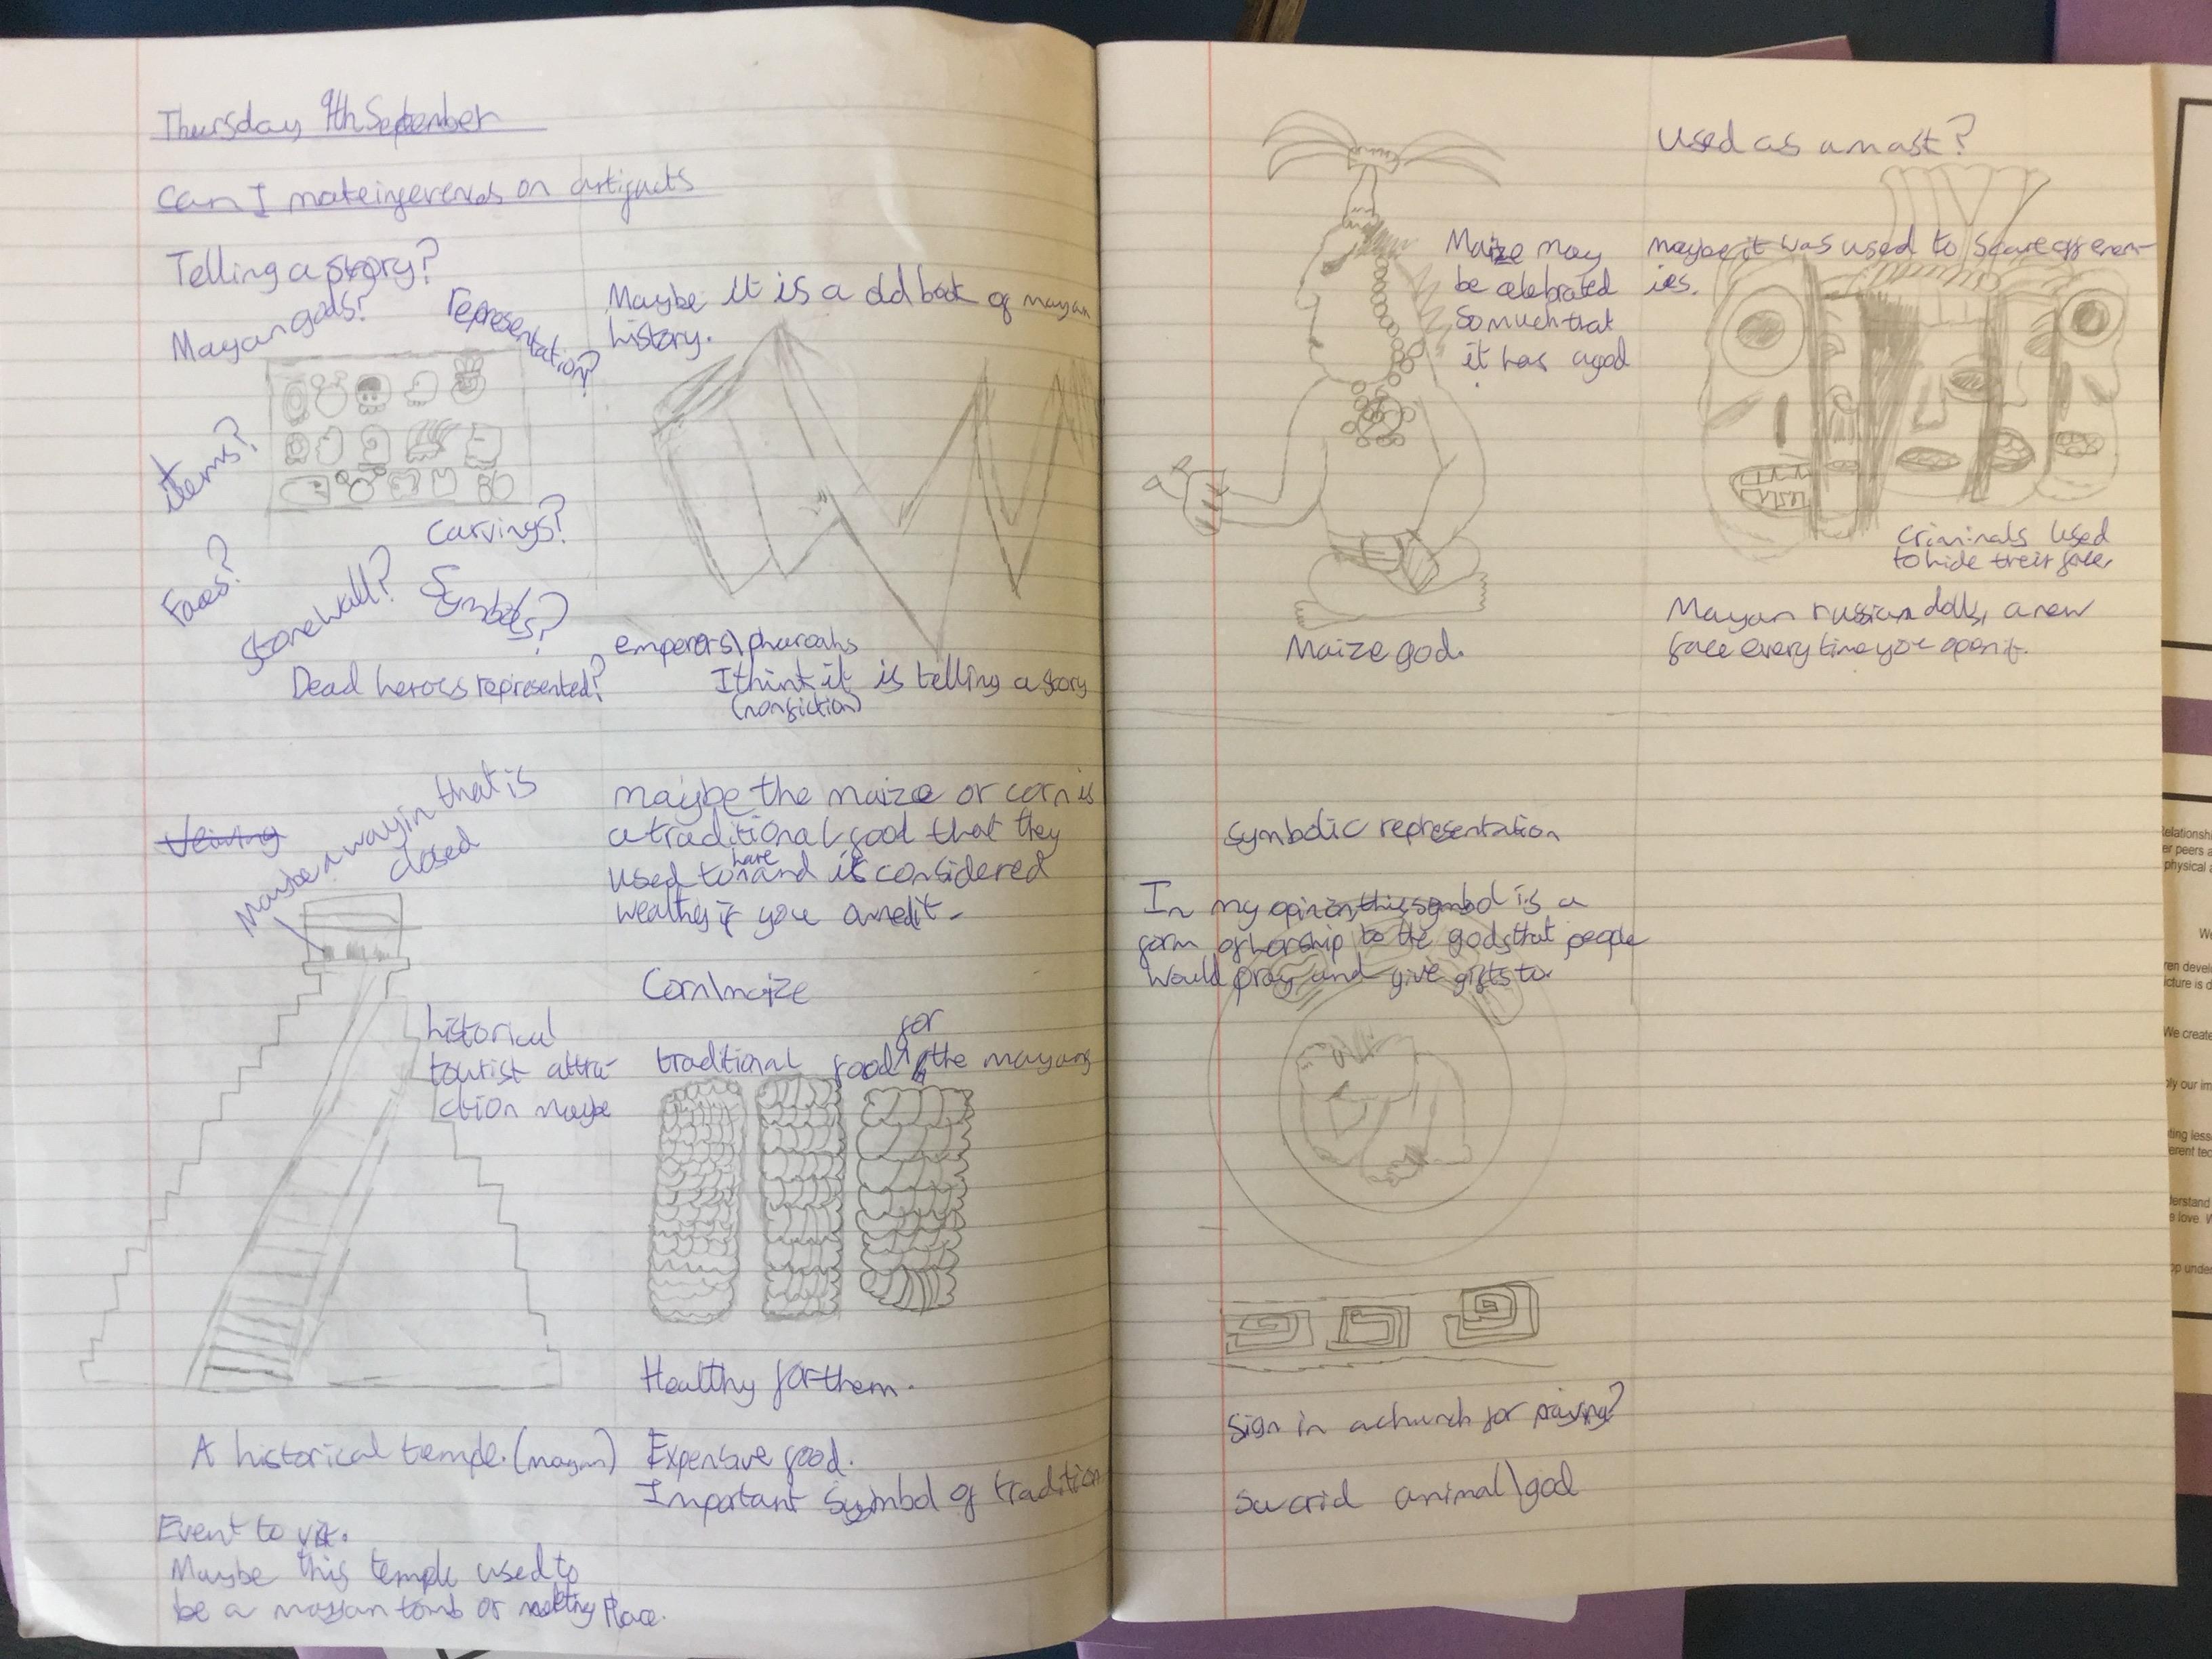 Thursday 9th September
Can I make inferences on artifacts
Telling a story?
Mayan gods?
representation?
items?
Faces?
Stone wall?
Carvings?
Symbols?
Dead heroes represented?
Maybe it is a old book of mayan
history.
emperors\pharoahs
I think it is telling a story
(nonfiction)
Maybe a way in that is
closed
historical
tourist attra-
ction maybe
A historical temple. (mayan)
Event to
Maybe this temple used to
be a mayan tomb or meeting place.
maybe the maize or corn is
a traditional food that they
used to have and is considered
wealthy if you
Corn\maize
traditional food for the mayans
Healthy for them.
Expensive food.
Important Symbol of tradition
Maize may
be celebrated
so much that
it has a god
Maize god.
Used as a mask?
maybe it was used to scare off enem-
ies.
Criminals used
to hide their face.
Mayan russian dolls, a new
face every time you open it.
symbolic representation
In my opinion this symbol is a
form of worship to the gods that people
would pray and give gifts to.
Sign in a church for praying?
Sacrid animal\god
relationshi
er peers a
physical a
We
ren devel
icture is d
We create
ply our im
ting less
erent tec
derstand
e love. W
op under